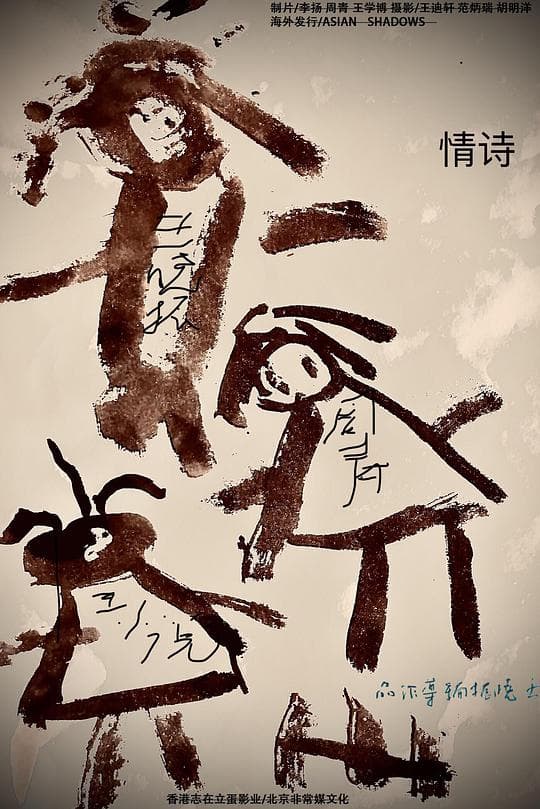 制片/李扬 周青 王学博 摄影/王迪轩 范炳瑞 胡明洋
海外发行/ASIAN SHADOWS
情诗
王晓振
周青
王晓振編導作品
香港志在立蛋影业/北京非常媒文化